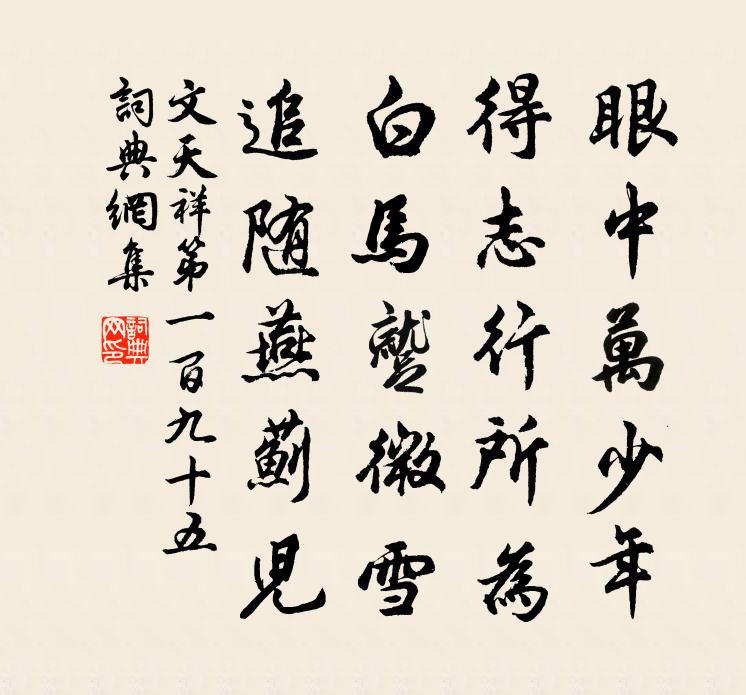 眼中萬少年
得志行所為
白馬蹵微雪
追随燕薊兒
文天祥第一百九十五
詞典網集
詞典網印